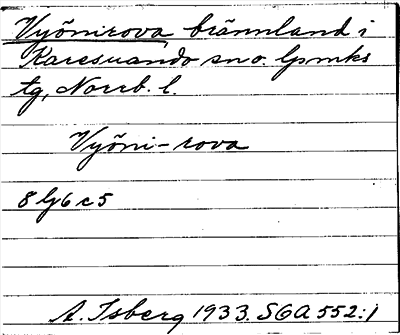 Vyõnirova brännland i
Karesuando sn o. lpmks
tg, Norrb. l.
Vyõni-rova
8 lj 6 c 5
A. Isberg 1933. SOA 552:1